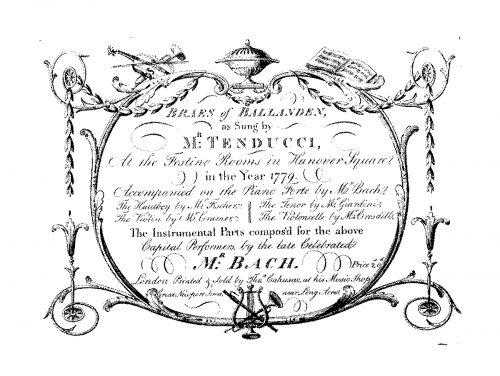 BRAES of BALLANDEN,
as Sung by
Mr. TENDUCCI,
At the Festino Rooms in Hanover Square
in the Year 1779
Accompanied on the Piano Forte by Mr. Bach
The Hautboy by Mr. Fischer | The Tenor by Mr. Giardini
The Violin by Mr. Cramer | The Violoncello by Mr. Crosdill
The Instrumental Parts compos'd for the above
Capital Performers by the late Celebrated
Mr. BACH.
Price
London Printed & Sold by Thos. Cahusac, at his Music Shop
Great Newport Street, near Long Acre.